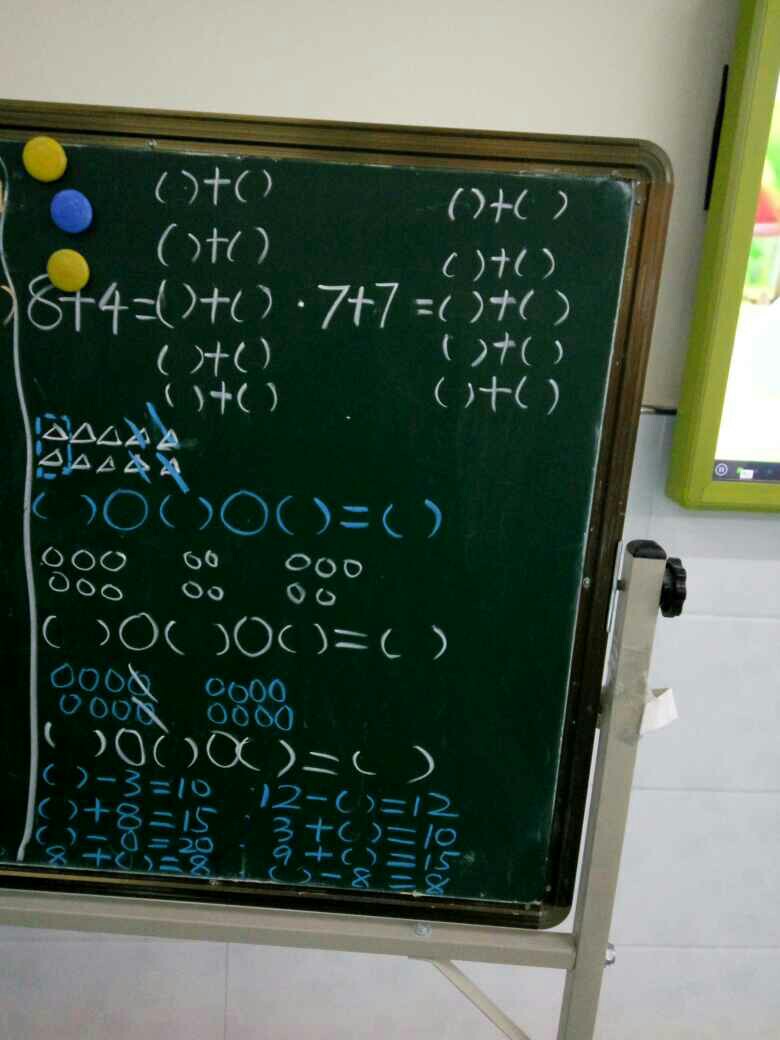 ( )+( ) ( )+( )
( )+( ) ( )+( )
8+4=( )+( ) · 7+7=( )+( )
( )+( ) ( )+( )
( )+( ) ( )+( )
( )○( )○( )=( )
( )○( )○( )=( )
( )○( )○( )=( )
( )-3=10 · 12-( )=12
( )+8=15 · 3+( )=10
( )-0=20 · 9+( )=15
8+( )=8 · ( )-8=8